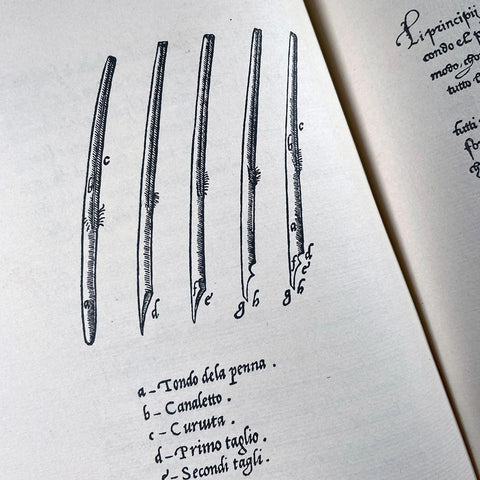 c
b
a
d
e
g
h
c
b
a
f
d
e
g
h
a – Tondo dela penna .
b – Canaletto .
c – Curuita .
d – Primo taglio .
e – Secondi tagli .
Li principii
condo el
modo, cho
tutto
tutti